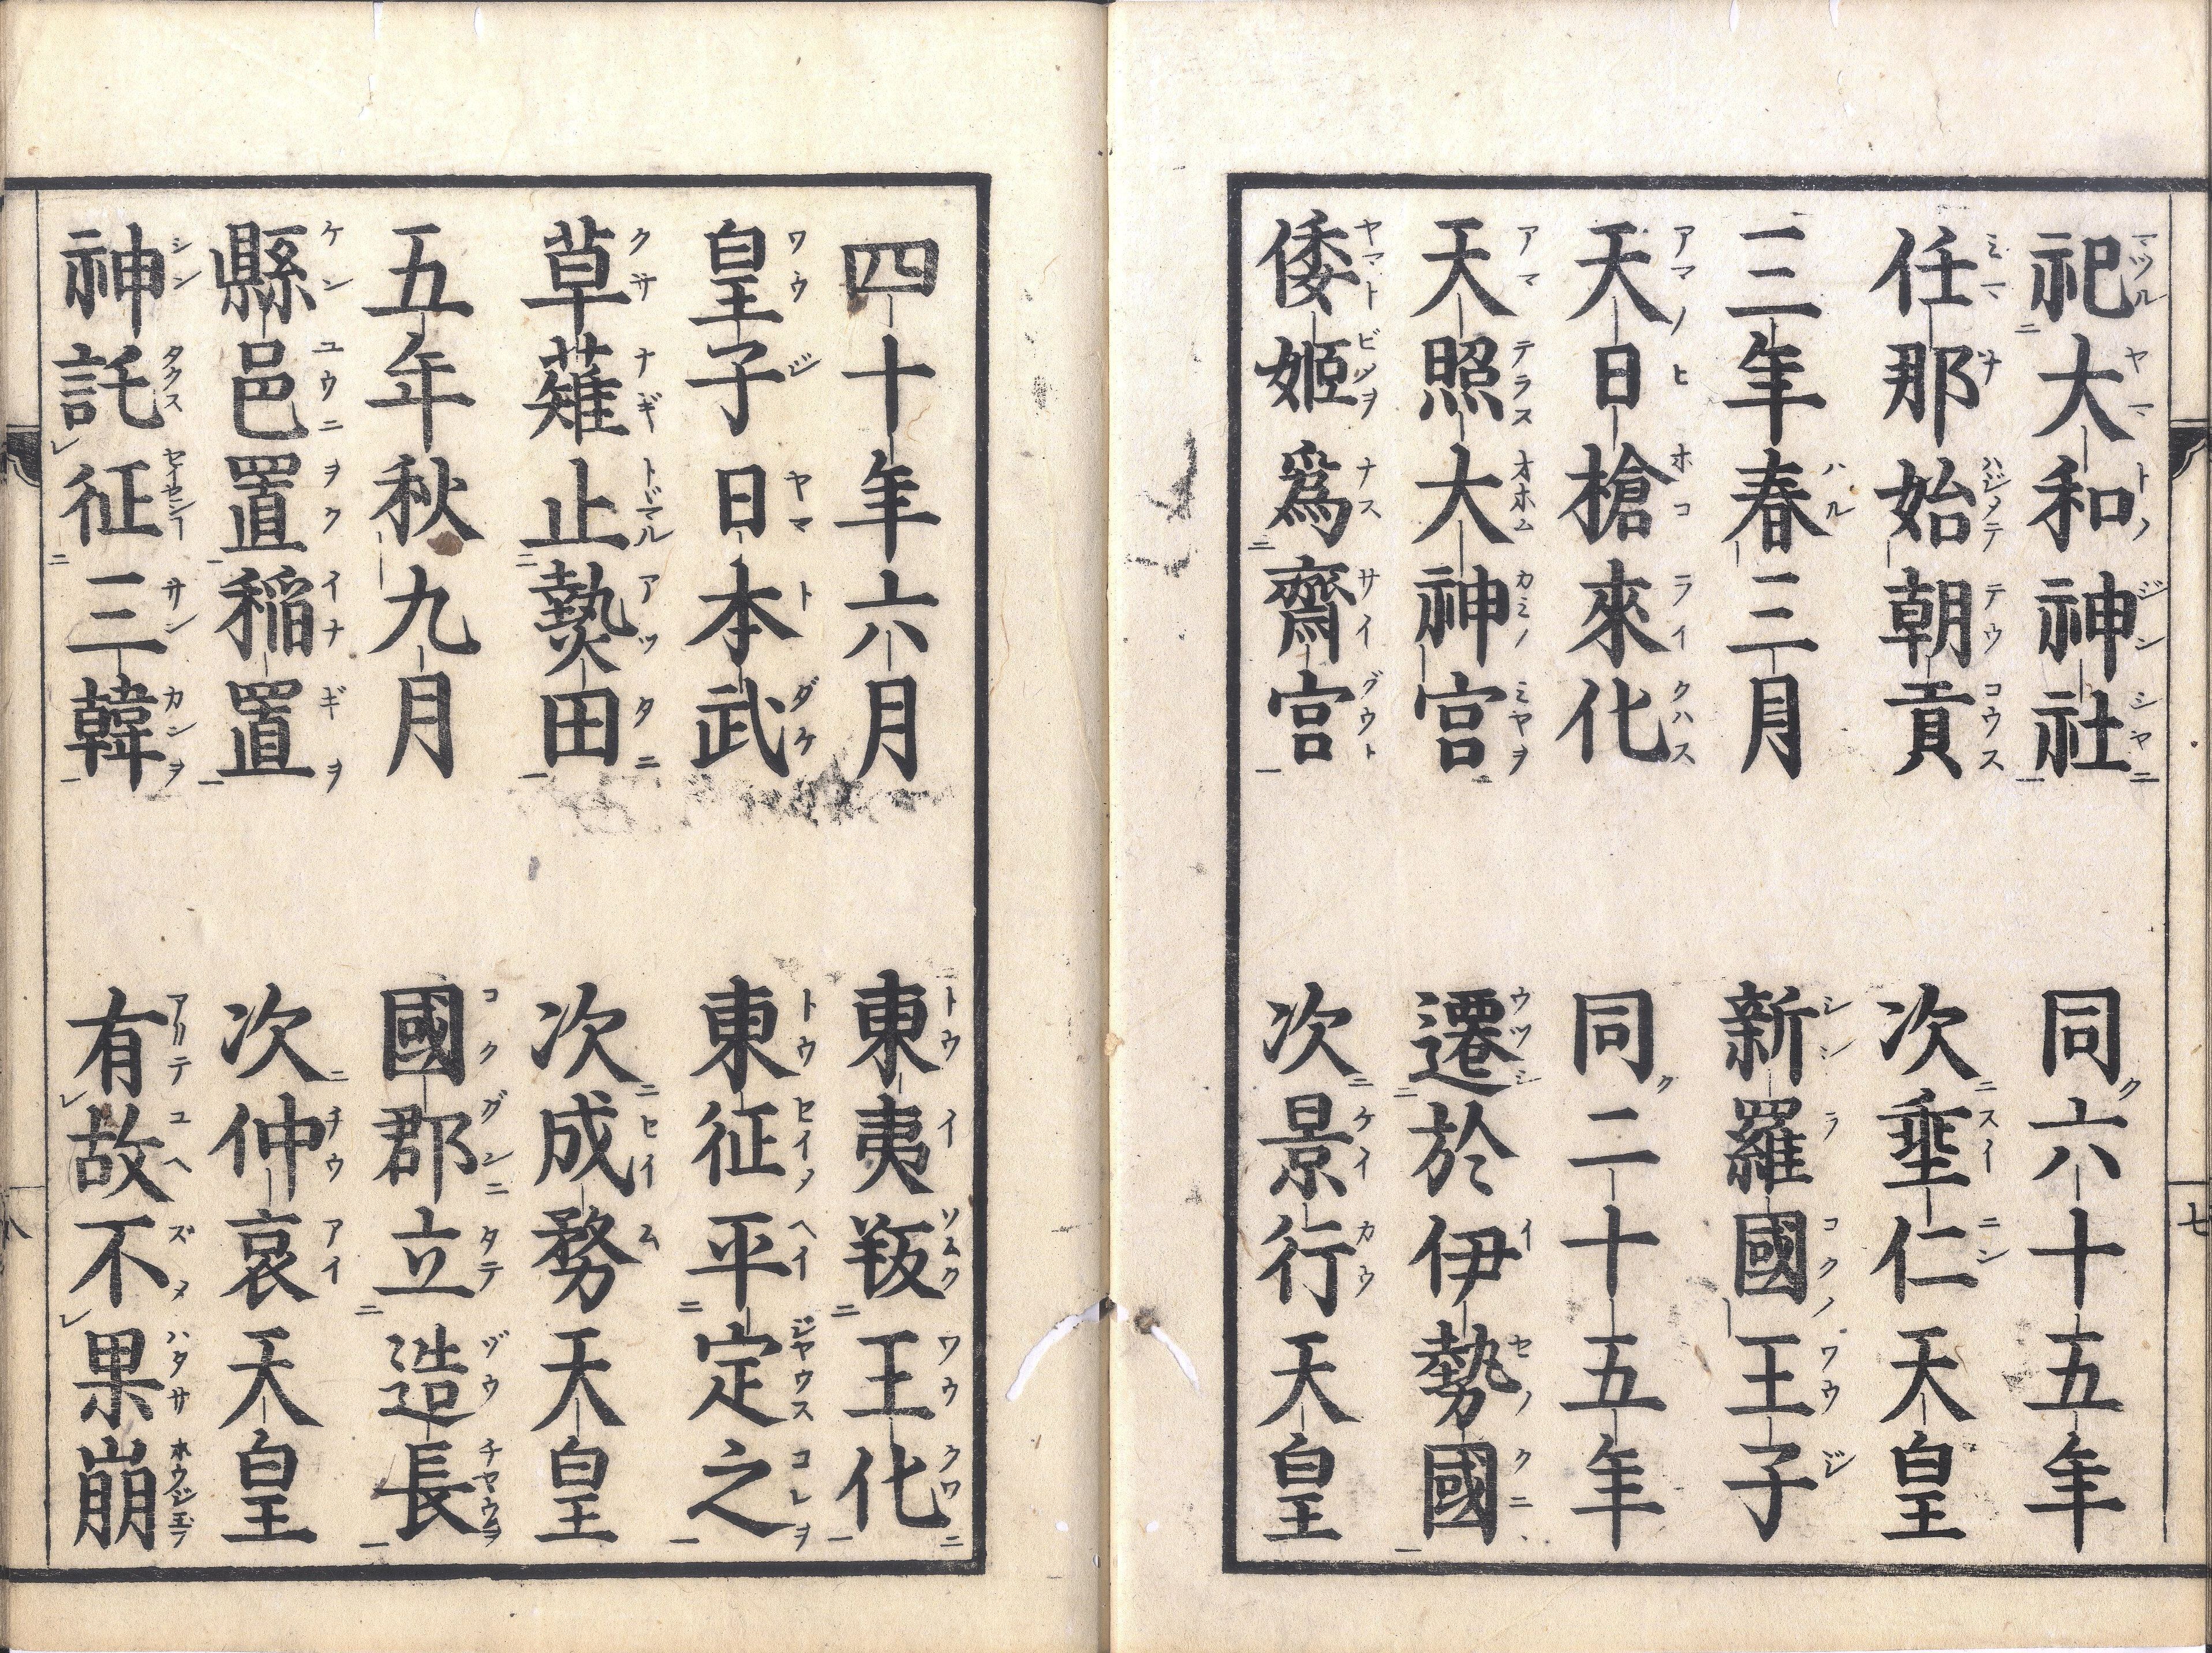 祀大和神社　同六十五年
任那始朝貢　次垂仁天皇
三年春三月　新羅國王子
天日槍來化　同二十五年
天照大神宮　遷於伊勢國
倭姬爲齋宮　次景行天皇
四十年六月　東夷叛王化
皇子日本武　東征平定之
草薙止熱田　次成務天皇
五年秋九月　國郡立造長
縣邑置稲置　次仲哀天皇
神託征三韓　有故不果崩
七